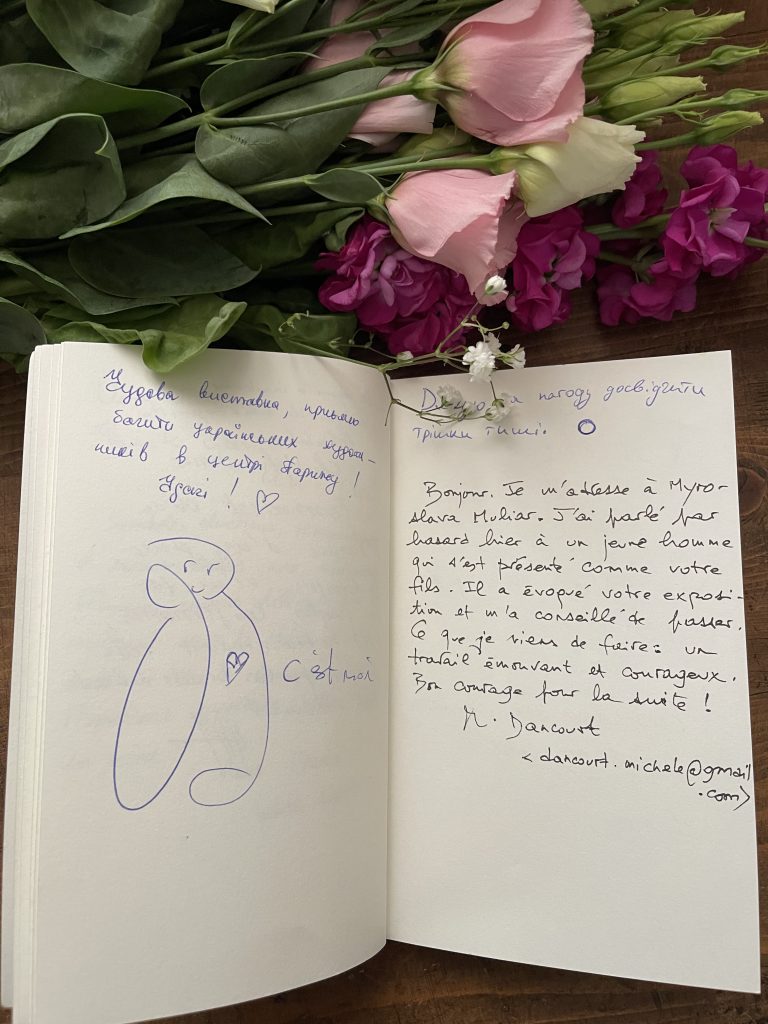 Чудова виставка, приємно
бачити українських худож-
ників в центрі Парижу!
Удачі! ♡
C'est moi
за нагоду досвідчити
трішки тиші.
Bonjour. Je m'adresse à Myro-
slava Muliar. J'ai parlé par
hasard hier à un jeune homme
qui s'est présenté comme votre
fils. Il a évoqué votre exposi-
tion et m'a conseillé de passer.
Ce que je viens de faire : un
travail émouvant et courageux.
Bon courage pour la suite !
M. Dancourt
<dancourt.michele@gmail
.com>